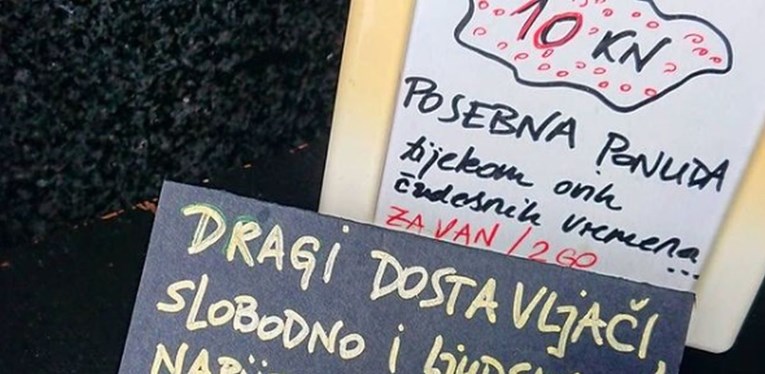 10 KN
POSEBNA PONUDA
tijekom ovih
čudesnih vremena...
ZA VAN / 2 GO
DRAGI DOSTAVLJAČI,
SLOBODNO i